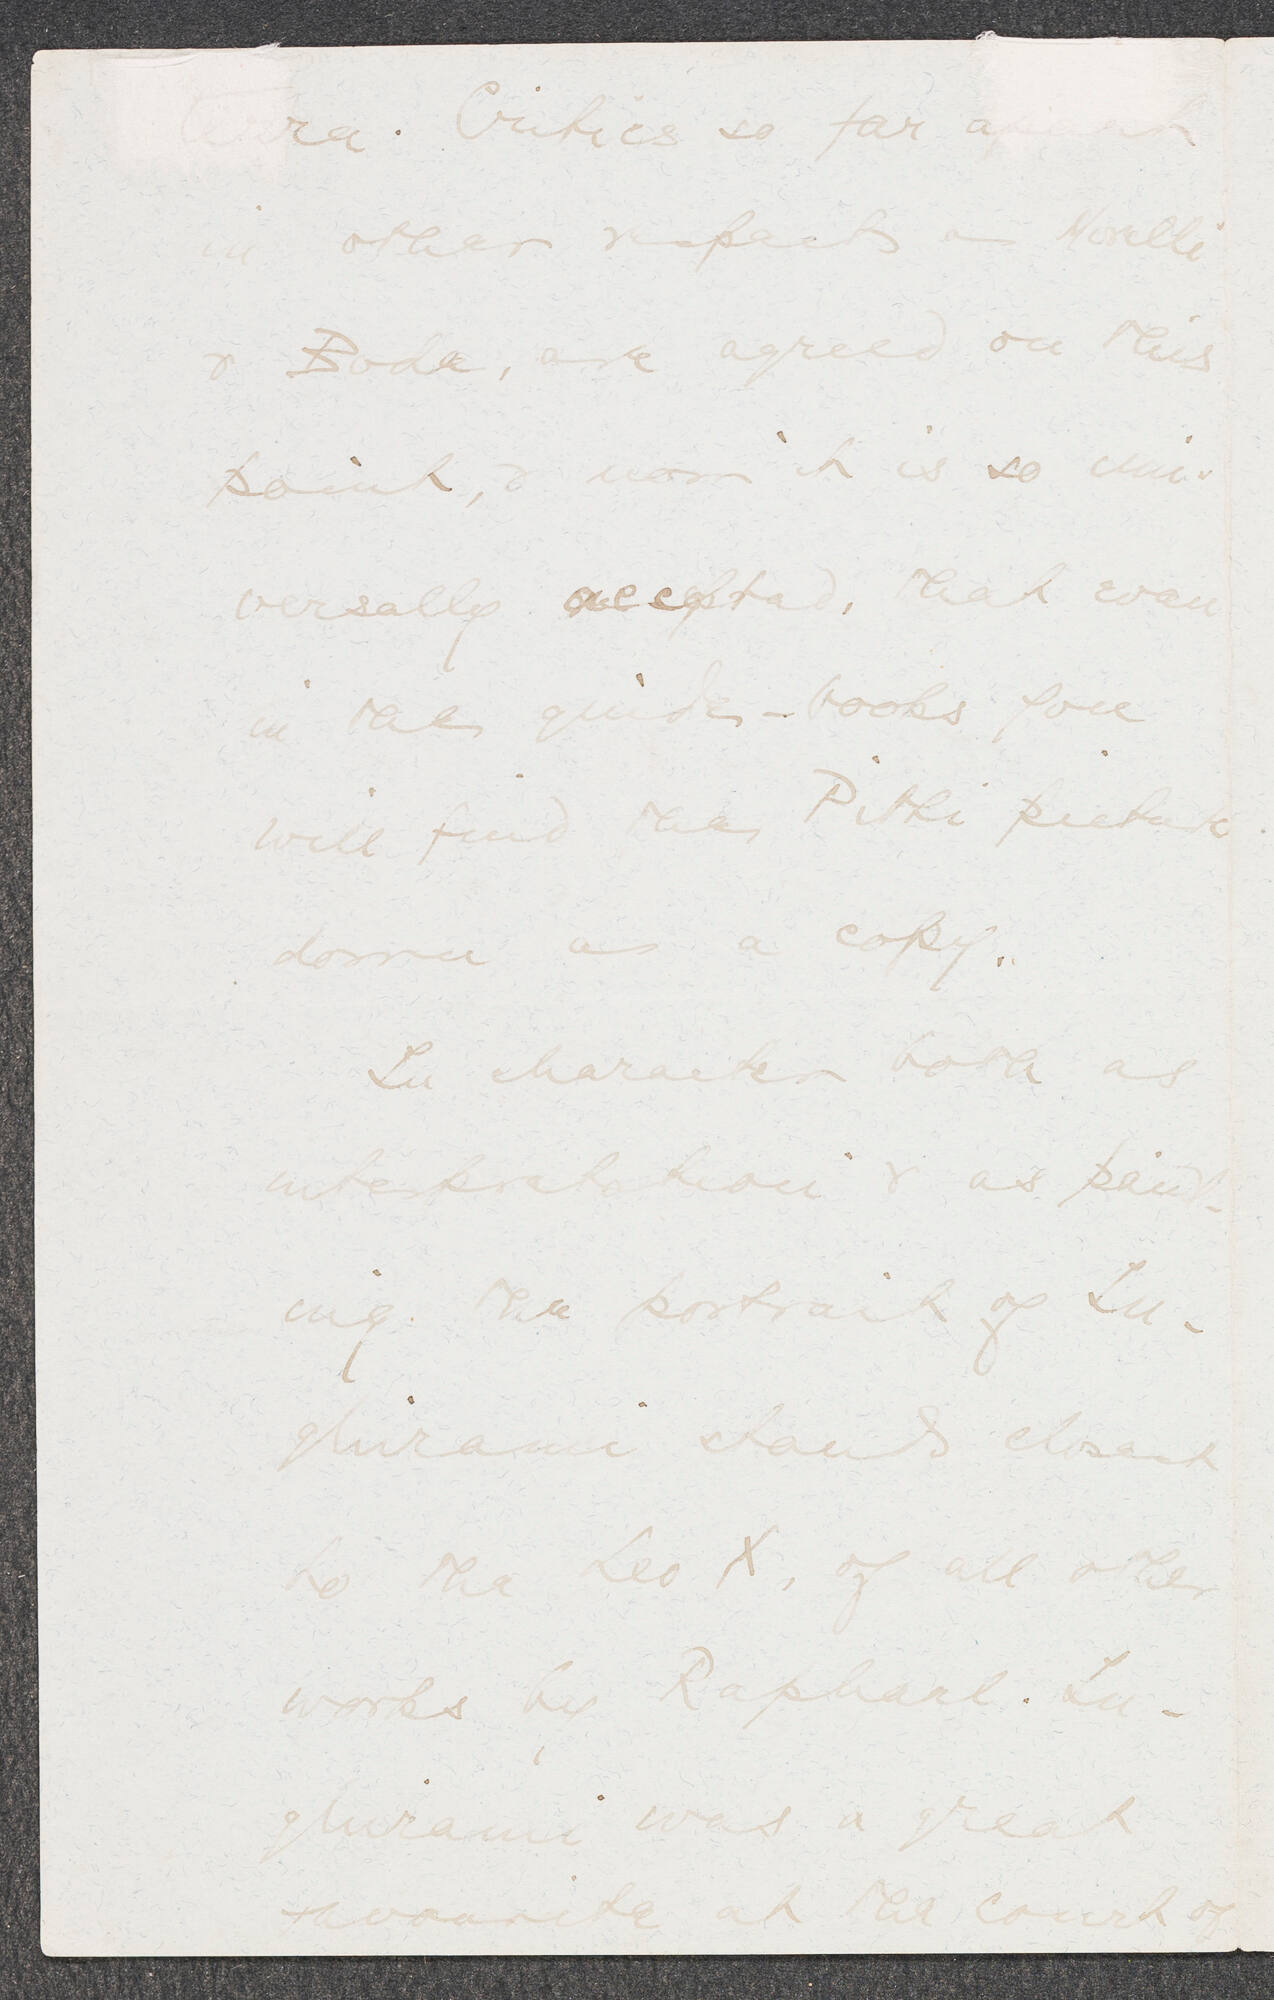 terra. Critics so far apart
in other respects as Morelli
& Bode, are agreed on this
point, & now it is so uni-
versally accepted, that even
in the guide-books you
will find the Pitti picture
down as a copy.
In character both as
interpretation & as paint-
ing. the portrait of In-
ghirami stands closest
to the Leo X, of all other
works by Raphael. In-
ghirami was a great
favourite at the court of